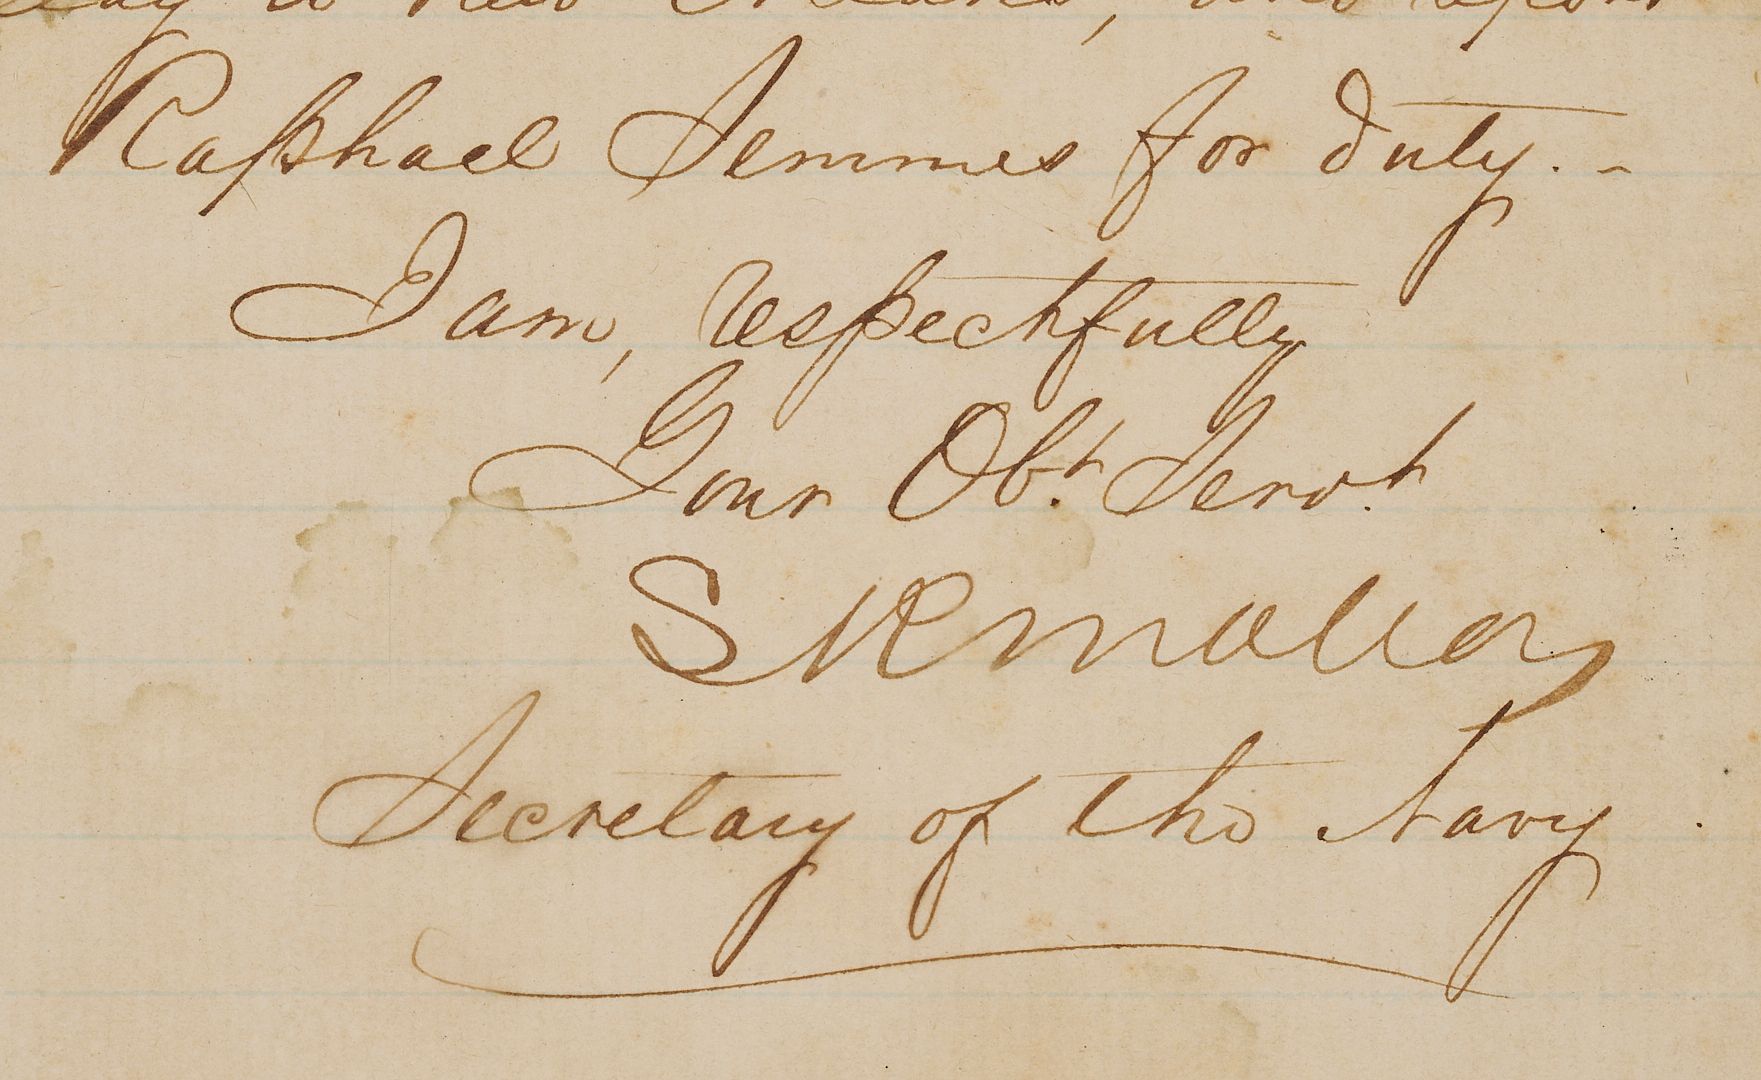 to New Orleans, and report
Raphael Semmes for duty. -
I am, respectfully
Your Obt. Servt.
S R Mallory
Secretary of the Navy